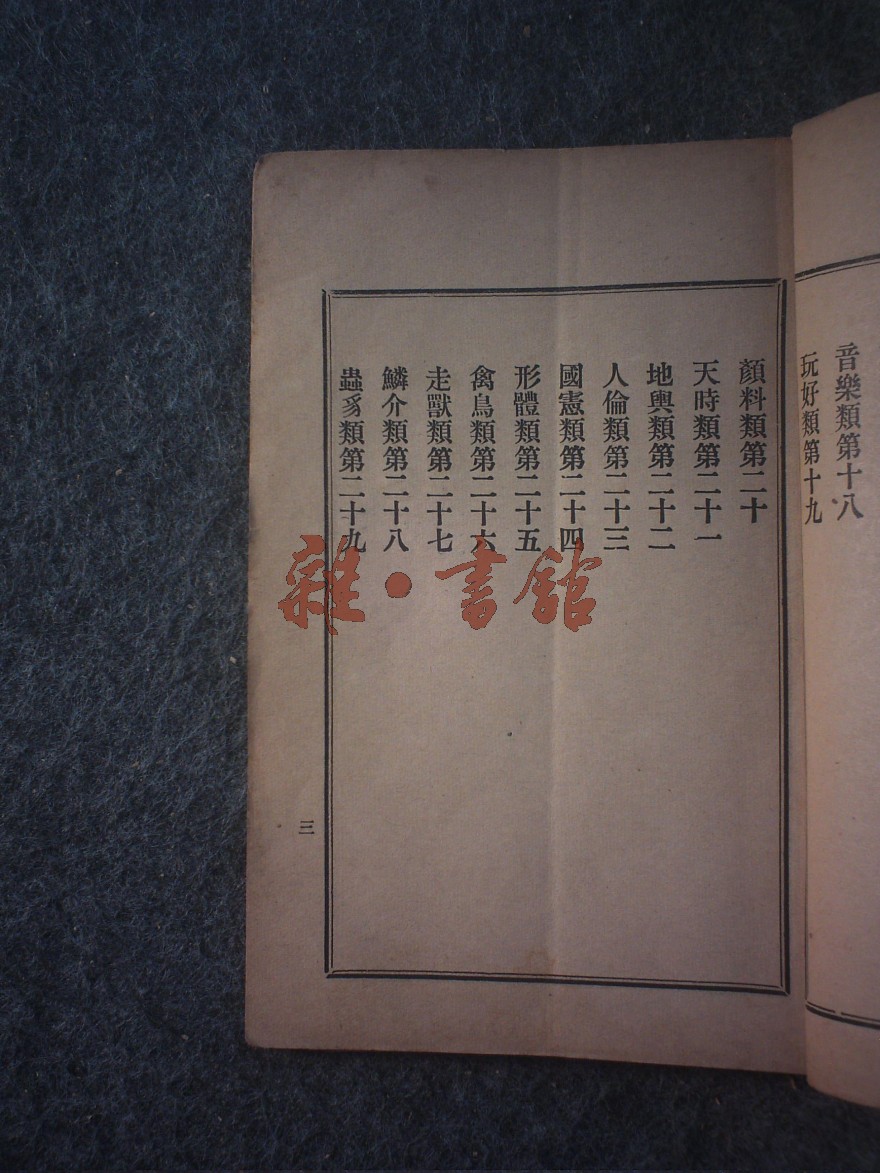 音樂類第十八
玩好類第十九
顏料類第二十
天時類第二十一
地輿類第二十二
人倫類第二十三
國憲類第二十四
形體類第二十五
禽鳥類第二十六
走獸類第二十七
鱗介類第二十八
蟲豸類第二十九
三
雜·書館